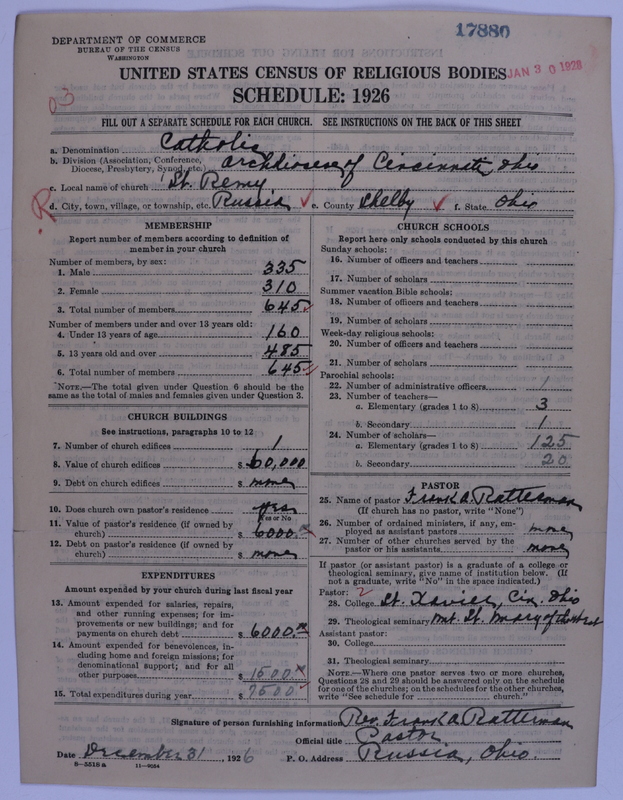 17880
DEPARTMENT OF COMMERCE
BUREAU OF THE CENSUS
WASHINGTON
UNITED STATES CENSUS OF RELIGIOUS BODIES
JAN 30 1928
SCHEDULE: 1926
FILL OUT A SEPARATE SCHEDULE FOR EACH CHURCH. SEE INSTRUCTIONS ON THE BACK OF THIS SHEET
a. Denomination Catholic
b. Division (Association, Conference, Diocese, Presbytery, Synod, etc.) Archdiocese of Cincinnati, Ohio
c. Local name of church St. Remy
d. City, town, village, or township, etc. Russia e. County Shelby f. State Ohio
MEMBERSHIP
Report number of members according to definition of
member in your church
Number of members, by sex:
1. Male 335
2. Female 310
3. Total number of members 645
Number of members under and over 13 years old:
4. Under 13 years of age 160
5. 13 years old and over 485
6. Total number of members 645
NOTE.—The total given under Question 6 should be
same as the total of males and females given under Question 3.
CHURCH BUILDINGS
See instructions, paragraphs 10 to 12
7. Number of church edifices 1
8. Value of church edifices $ 60,000
9. Debt on church edifices $ none
10. Does church own pastor's residence yes
Yes or No
11. Value of pastor's residence (if owned by
church) $ 6000
12. Debt on pastor's residence (if owned by
church) $ none
EXPENDITURES
Amount expended by your church during last fiscal year
13. Amount expended for salaries, repairs,
and other running expenses; for im-
provements or new buildings; and for
payments on church debt $ 6000.00
14. Amount expended for benevolences, in-
cluding home and foreign missions; for
denominational support; and for all
other purposes $ 1500
15. Total expenditures during year $ 7500
CHURCH SCHOOLS
Report here only schools conducted by this church
Sunday schools:
16. Number of officers and teachers
17. Number of scholars
Summer vacation Bible schools:
18. Number of officers and teachers
19. Number of scholars
Week-day religious schools:
20. Number of officers and teachers
21. Number of scholars
Parochial schools:
22. Number of administrative officers 1
23. Number of teachers—
a. Elementary (grades 1 to 8) 3
b. Secondary 1
24. Number of scholars—
a. Elementary (grades 1 to 8) 125
b. Secondary 20
PASTOR
25. Name of pastor Frank A Ratterman
(If church has no pastor, write "None")
26. Number of ordained ministers, if any, em-
ployed as assistant pastors none
27. Number of other churches served by the
pastor or his assistants none
If pastor (or assistant pastor) is a graduate of a college or
theological seminary, give name of institution below. (If
not a graduate, write "No" in the space indicated.)
Pastor: 2
28. College St. Xavier, Cin. Ohio
29. Theological seminary Mt. St. Mary of the West
Assistant pastor:
30. College
31. Theological seminary
NOTE.—Where one pastor serves two or more churches,
Questions 28 and 29 should be answered only on the schedule
for one of the churches; on the schedules for the other churches,
write "See schedule for church."
Signature of person furnishing information Rev. Frank A Ratterman
Official title Pastor
Date December 31 1926 P. O. Address Russia, Ohio.
8—5518 a 11—9054